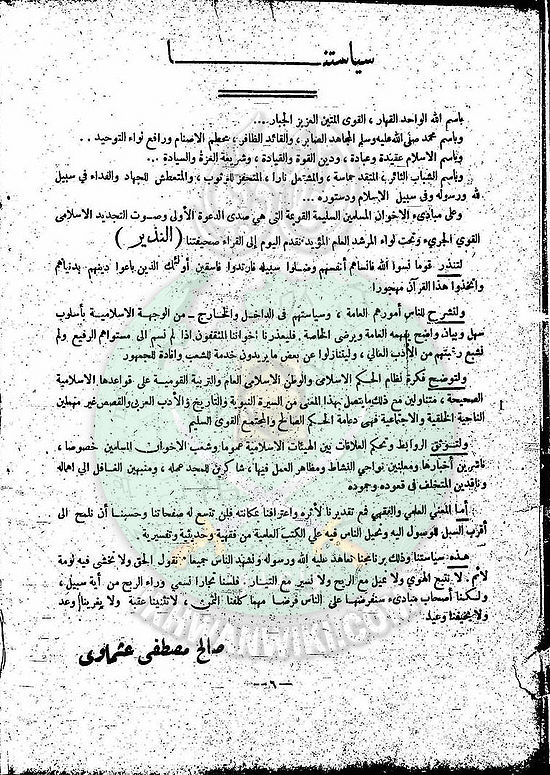 سياستنــــــــــــــا
باسم الله الواحد القهار ، القوى المتين العزيز الجبار ....
وباسم محمد صلى الله عليه وسلم المجاهد الصابر ، والقائد الظافر ، محطم الاصنام ورافع لواء التوحيد ..
وباسم الاسلام عقيدة وعبادة ، ودين القوة والقيادة ، وشريعة العزة والسيادة ...
وباسم الشباب الثائر ، المتقد حماسة ، والمشتعل نارا ، المتحفز للوثوب ، والمتعطش للجهاد والفداء فى سبيل
لله ورسوله وفى سبيل الاسلام ودستوره ...
وعلى مبادىء الاخوان المسلمين السليمة القويمة التى هى صدى الدعوة الأولى وصوت التجديد الاسلامى
القوى الجرىء وتحت لواء المرشد العام المؤيد نتقدم اليوم إلى القراء بصحيفتنا ( النذير )
لتنذر قوما نسوا الله فانساهم أنفسهم وضلوا سبيله فارتدوا فاسقين أولئك الذين باعوا دينهم بدنياهم
واتخذوا هذا القرآن مهجورا
ولتشرح للناس أمورهم العامة ، وسياستهم فى الداخل والخارج - من الوجهة الاسلامية بأسلوب
سهل وبيان واضح يفهمه العامة ويرضى الخاصة . فليعذرنا اخواننا المثقفون اذا لم نسم الى مستواهم الرفيع ولم
نشبع رغبتهم من الأدب العالى ، وليتنازلوا عن بعض ما يريدون خدمة للشعب وافادة للجمهور
ولتوضح فكرة نظام الحكم الاسلامى والوطن الاسلامى العام والتربية القومية على قواعدها الاسلامية
الصحيحة ، متناولين مع ذلك ما يتصل بهذا المعنى من السيرة النبوية والتاريخ والأدب العربى والقصص غير مهملين
الناحية الخلقية والاجتماعية فهى دعامة الحكم الصالح والمجتمع القوى السليم
ولتوثق الروابط وتحكم العلاقات بين الهيئات الاسلامية عموما وشعب الاخوان المسلمين خصوصا ،
ناشرين أخبارها ومعلنين نواحى النشاط ومظاهر العمل فيها ، شاكرين للمجد عمله ، ومنبهين الغافل الى اهماله
وناقدين المتخلف فى قعوده وجموده
أما المعنى العلمى والفقهى فمع تقديرنا لأثره واعترافنا بمكانته فلن تتسع له صفحاتنا وحسبنا أن نلمح الى
أقرب السبل للوصول اليه ونحيل الناس فيه على الكتب العلمية من فقهية وحديثية وتفسيرية
هذه سياستنا وذلك برنامجنا نعاهد عليه الله ورسوله ونشهد الناس جميعا . نقول الحق ولا نخشى فيه لومة
لائم . لا نتبع الهوى ولا نميل مع الريح ولا نسير مع التيار . فلسنا تجارا نسعى وراء الربح من أية سبيل ،
ولكننا أصحاب مبادىء سنفرضها على الناس فرضا مهما كلفنا الثمن ، لا تثنينا عقبة ولا يغرينا وعد
ولا يخيفنا وعيد
صالح مصطفى عشماوى
— ٦ —
IKHWANWIKI.COM